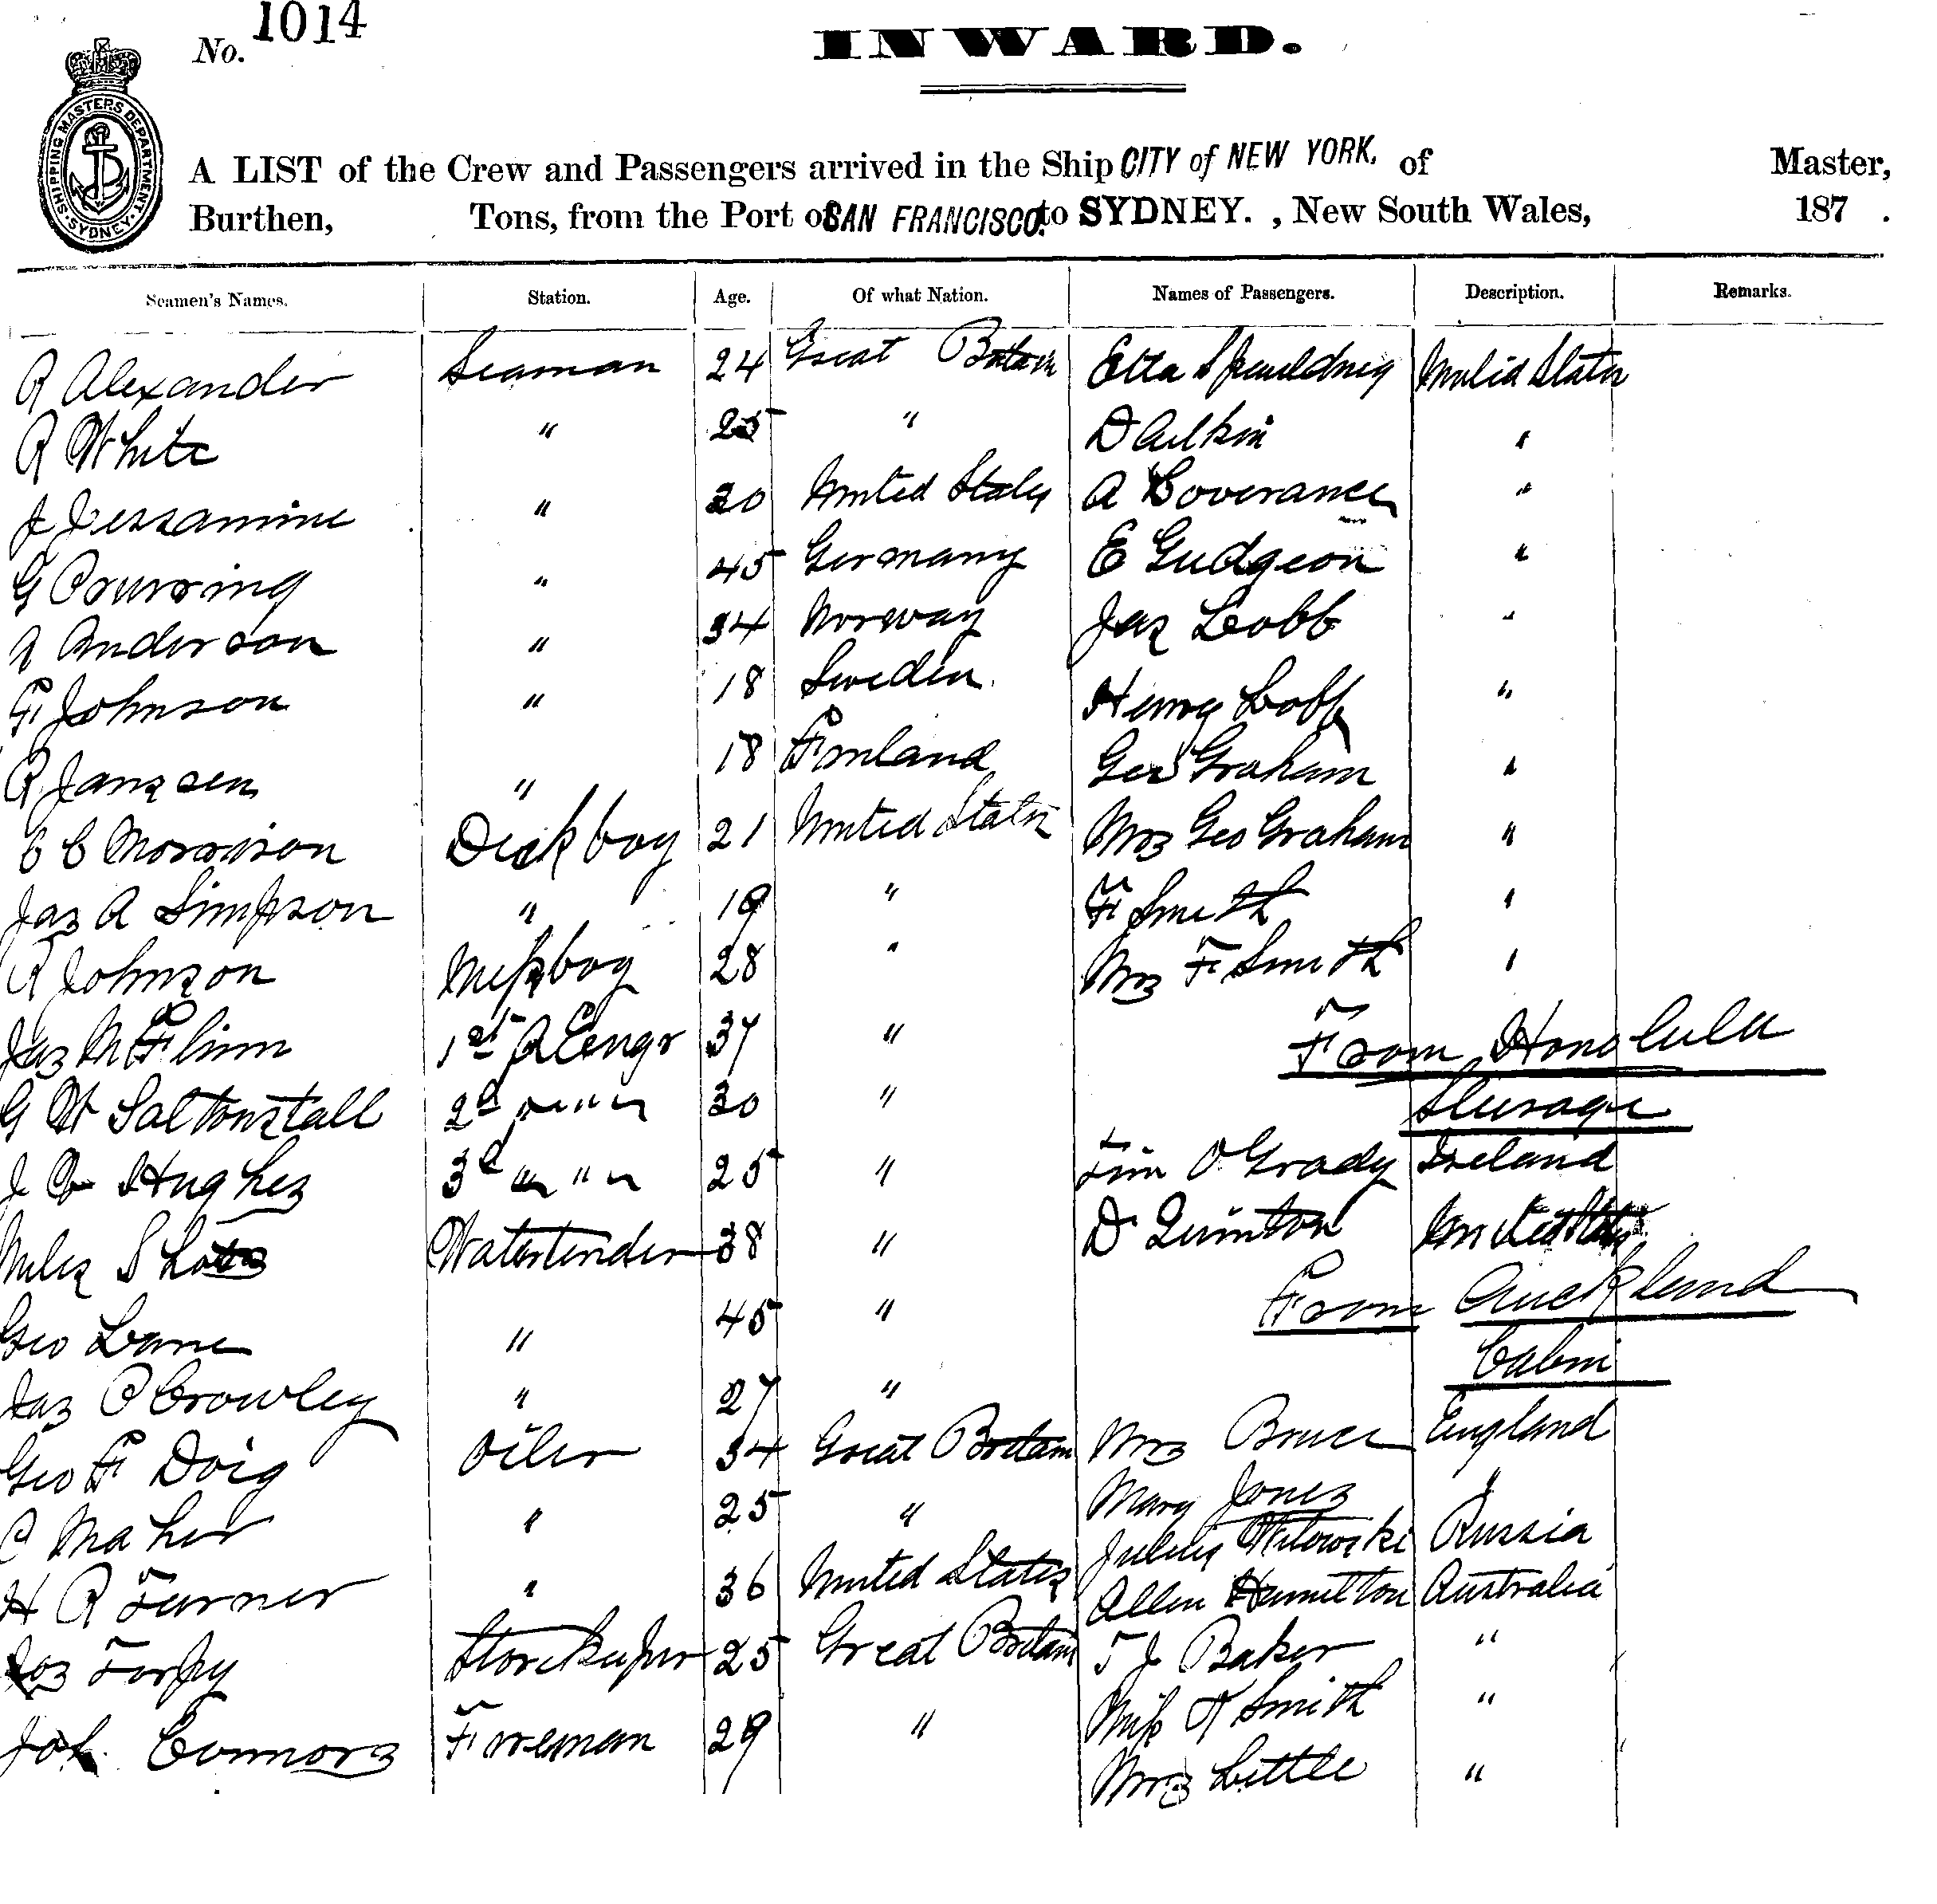 No. 1014
INWARD.
SHIPPING MASTERS DEPARTMENT. SYDNEY.
A LIST of the Crew and Passengers arrived in the Ship CITY of NEW YORK. of Master,
Burthen, Tons, from the Port of SAN FRANCISCO. to SYDNEY. , New South Wales, 187 .
Seamen's Names. Station. Age. Of what Nation. Names of Passengers. Description. Remarks.
R Alexander Seaman 24 Great Britain Etta Spaulding United States
R White " 25 " D Aitkin "
J Jessamine " 20 United States A "
G " 45 Germany E Gudgeon "
A Anderson " 34 Norway Jas Cobb "
F Johnson " 18 Sweden Henry "
R Janssen " 18 Finland Geo Graham "
C C Morrison Deck boy 21 United States Mrs Geo Graham "
Jas A Simpson " 19 " F Smith "
R Johnson Messboy 28 " Mrs F Smith "
Jas McFlinn 1st A Engr 37 " From Honolulu
G W Saltonstall 2d " " " 30 " Steerage
J Hughes 3d " " " 25 " Tim O'Grady Ireland
Miles Watertender 38 " D Quinton United States
Geo Lane " 45 " From Auckland
Jas P Crowley " 27 " Cabin
Geo F Doig Oiler 34 Great Britain Mrs Bruce England
C Maher " 25 " Mary Jones "
H R Turner " 36 United States Julius Witowski Russia
Allen Hamilton Australia
Jas Torpy Storekeeper 25 Great Britain T J Baker "
Miss Smith "
Connors Fireman 29 " Mrs Little "